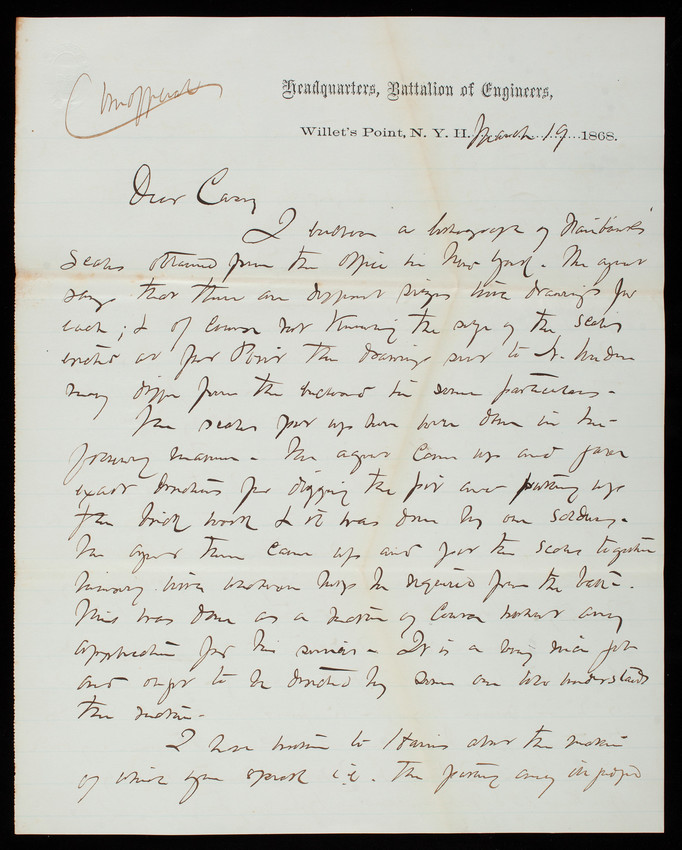 (Unofficial)
Headquarters, Battalion of Engineers,
Willet's Point, N. Y. H. March 19 1868.
Dear Casey
I enclose a lithograph of Fairbanks'
Scales obtained from the Office in New York. The agent
says that there are different sizes with drawings for
each; & of course not knowing the size of the Scales
erected at your Point the drawings sent to
may differ from the enclosed in some particulars.
The scales put up here were done in the
following manner. The agent came up and gave
exact directions for digging the pit and putting up
the brick work & it was done by our soldiers.
The agent then came up and put the scales together
having with whatever help he required from the batt.
This was done as a matter of course without any
application for his services. It is a very nice job
and ought to be directed by some one who understands
the matter.
I have written to Harris about the matter
of which you speak i.e. the putting away